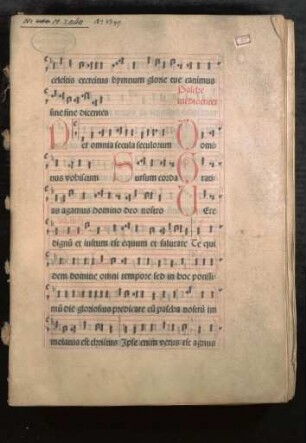 celestis exercitus hymnum glorie tue canimus
sine fine dicentes
Pasche
in diebus
Per omnia secula seculorum Domi
nus vobiscum Sursum corda Grati
as agamus domino deo nostro Vere
dignū et iustum est equum et salutare Te qui
dem domine omni tempore sed in hoc potissi
mū die gloriosius predicare cū pascha nostrū im
molatus est christus Ipse enim verus est agnus